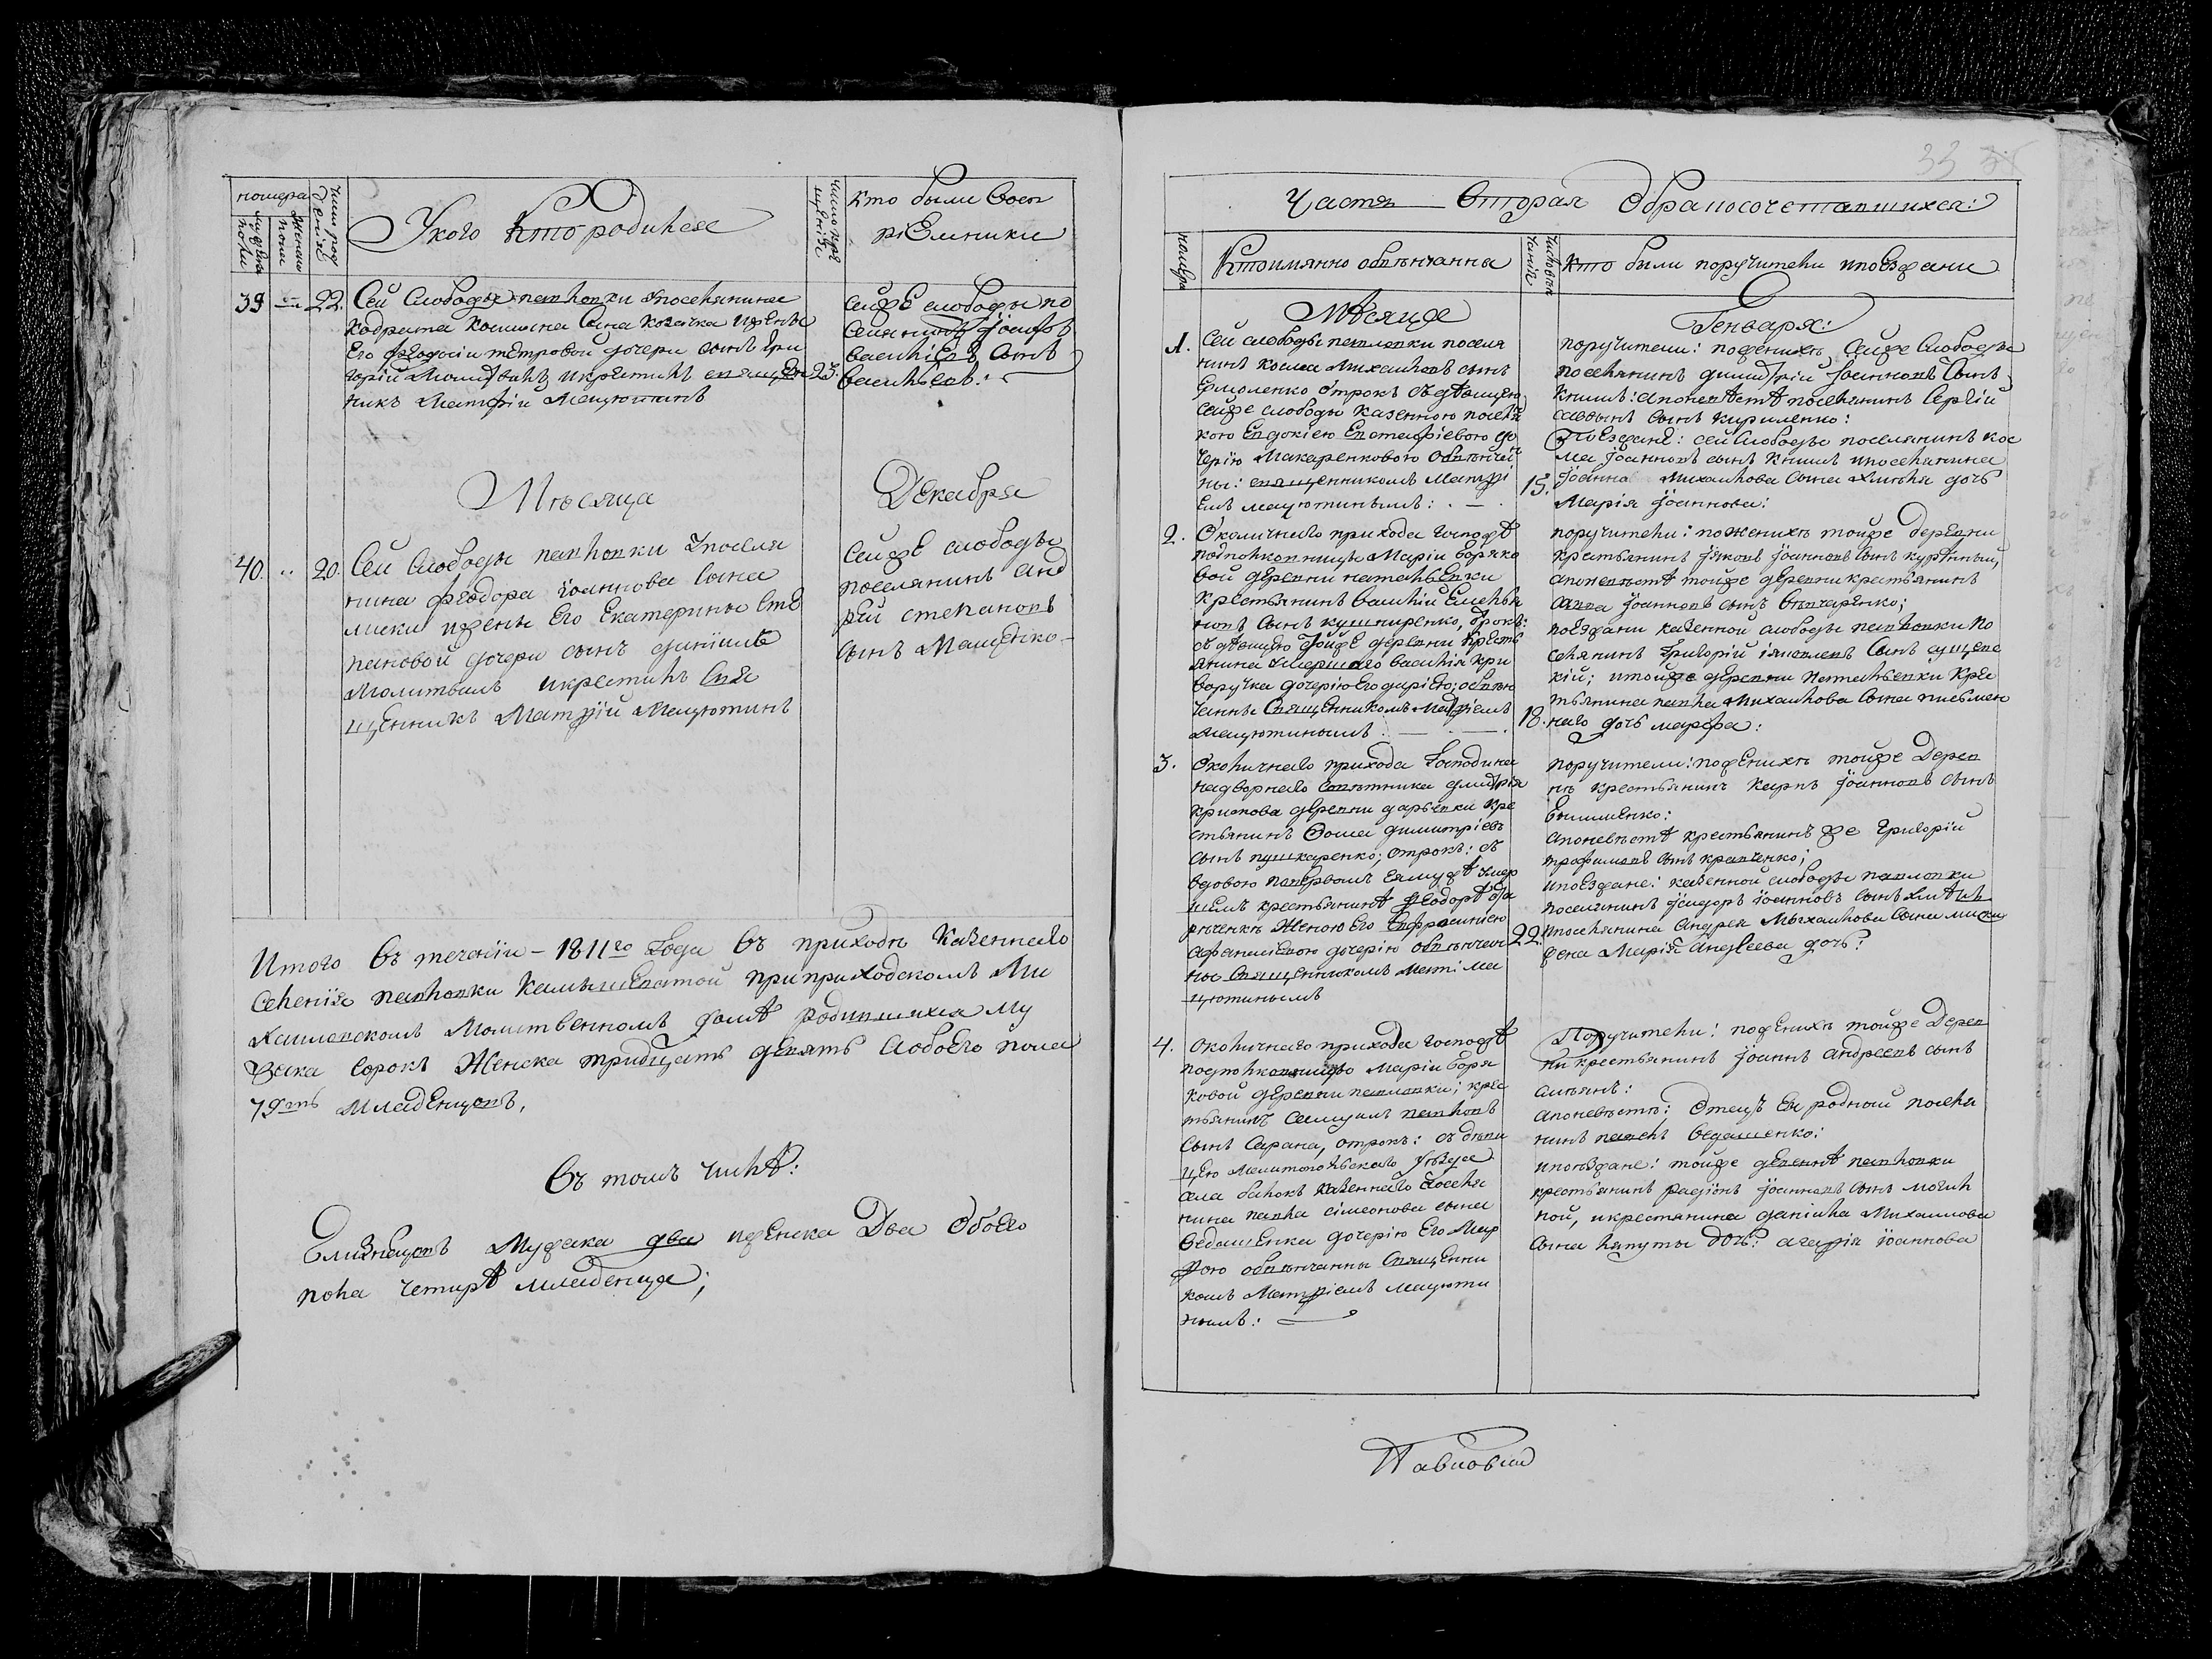 номера
мужеска пола
женска пола
число рождения
У кого Кто родился
число крещенія
кто были Восп
рiемники
39 .. 22. Сей Слободы павловки Упоселянина
кодрата козмина Сына козачка ижены
Его феодосіи петровой дочери сынъ гри
горій Молитвилъ икрестилъ священ 23.
никъ Матфій Мацютинъ
Сейже слободы по
селянинъ Іоаннъ
василіевъ Сынъ
васильевъ:
Мѣсяца Декабря
40. .. 20. Сей Слободы павловки Упоселя
нина феодора Іоаннова Сына
лиски ижены Его Екатерины Сте
пановой дочери сынъ даніилъ
Молитвилъ икрестилъ Свя
щенникъ Матфій Мацютинъ
Сейже слободы
поселянинъ Анд
рей степановъ
Сынъ Мащенко
Итого Въ теченіи 1811го Года Въ приходѣ Казеннаго
Селенія павловки Камышеватой приприходскомъ Ми
хаиловскомъ Молитвенномъ домѣ родившихся Му
жска Сорокъ Женска тридцать девять Аобоего пола
79ть Младенцовъ.
Въ томъ числѣ:
Близнецовъ Мужска два иженска Два Обоего
пола четирѣ младенца;
33
Часть Вторая Обракосочетавшихся:
номеръ
Ктоимянно обвѣнчанны
число вѣнчанія
Кто были поручители ипоезжани
Мѣсяца Генваря:
1. Сей слободы павловки поселя
нинъ козма Михаиловъ сынъ
Ермоленко отрокъ съдѣвицею
сейже слободы казенного поселян
кого Евдокіею Евстафіевою до
черію Макаренковою обвѣнчан
ны: священникомъ Матфі 15.
емъ мацютинымъ:
поручители: поженихѣ Сейже Слободы
поселянинъ димитрій Іоанновъ Сынъ
книшъ: апоневѣстѣ поселянинъ Сергій
саввинъ сынъ кириленко:
Поезжанѣ: сей Слободы поселянинъ кос
ма Іоанновъ сынъ книшъ ипоселянина
Іоанна Михаилова Сына дочь
Марія Іоаннова:
2. Околичнаго прихода госпожѣ
подполковницы Маріи боряко
вой деревни натальевки
крестьянинъ василій Емелья
новъ сынъ кушниренко, отрокъ:
съ дѣвицею тойже деревни кресть
янина умершаго василія кри
воручка дочерію Егодаріею; обвѣн
чанны Священникомъ Матфіемъ 18.
Мацютинымъ:
поручители: поженихѣ тойже деревни
крестьянинъ Іаковъ Іоанновъ сынъ курѣнный,
апоневѣстѣ тойже деревни крестьянинъ
савва Іоанновъ сынъ
поезжани казенной слободы павловки по
селянинъ григорій Іаковлевъ Сынъ
кій; итойже деревни Натальевки Кре
стьянина павла Михаилова Сына писмен
наго дочь марфа:
3. Околичнаго прихода Господина
надворнаго Совѣтника дмитрія
крюкова деревни дарьевки кре
стьянинъ Ѳома димитріевъ
сынъ пушкаренко; отрокъ: съ
вдовою поперьвомъ Еямужѣ умер
шемъ крестьянинѣ феодорѣ
Женою Его Евфросиніею
Афанасіевою дочерію обвѣнчан 22.
ны Священникомъ Матфі Ма
цютинымъ
поручители: поженихѣ тойже Дерев
нѣ крестьянинъ Карпъ Іоанновъ сынъ
апоневѣстѣ крестьянинъ же Григорій
трофимовъ сынъ кравченко;
ипоезжане: казенной слободы павловки
поселянинъ Ісидоръ Іоанновъ сынъ
ипоселянина Андрея Михаилова Сына
жена Марія Андреева дочь:
4. Околичнаго прихода госпожѣ
подполковницы Маріи боря
ковой деревни павловки; крес
тьянинъ Самуилъ павловъ
сынъ Сарана, отрокъ: съ дѣви
цею Мелитопольскаго Уѣзда
села балокъ казеннаго Поселя
нина павла сімеонова сына
Ведашенка дочерію Его Мар
фою обвѣнчанны Священни
комъ Матфіемъ мацюти
нымъ:
Поручители: поженихѣ тойже Дерев
ни крестьянинъ Іоаннъ андреевъ сынъ
апоневѣстѣ: Отецъ Ея родной поселя
нинъ павелъ Ведашенко:
ипоезжане: тойже деревнѣ павловки
крестьянинъ родіонъ Іоанновъ сынъ могил
ной, икрестянина даніила Михаилова
Сына ляпуты дочь: агафія Іоаннова
Павловки